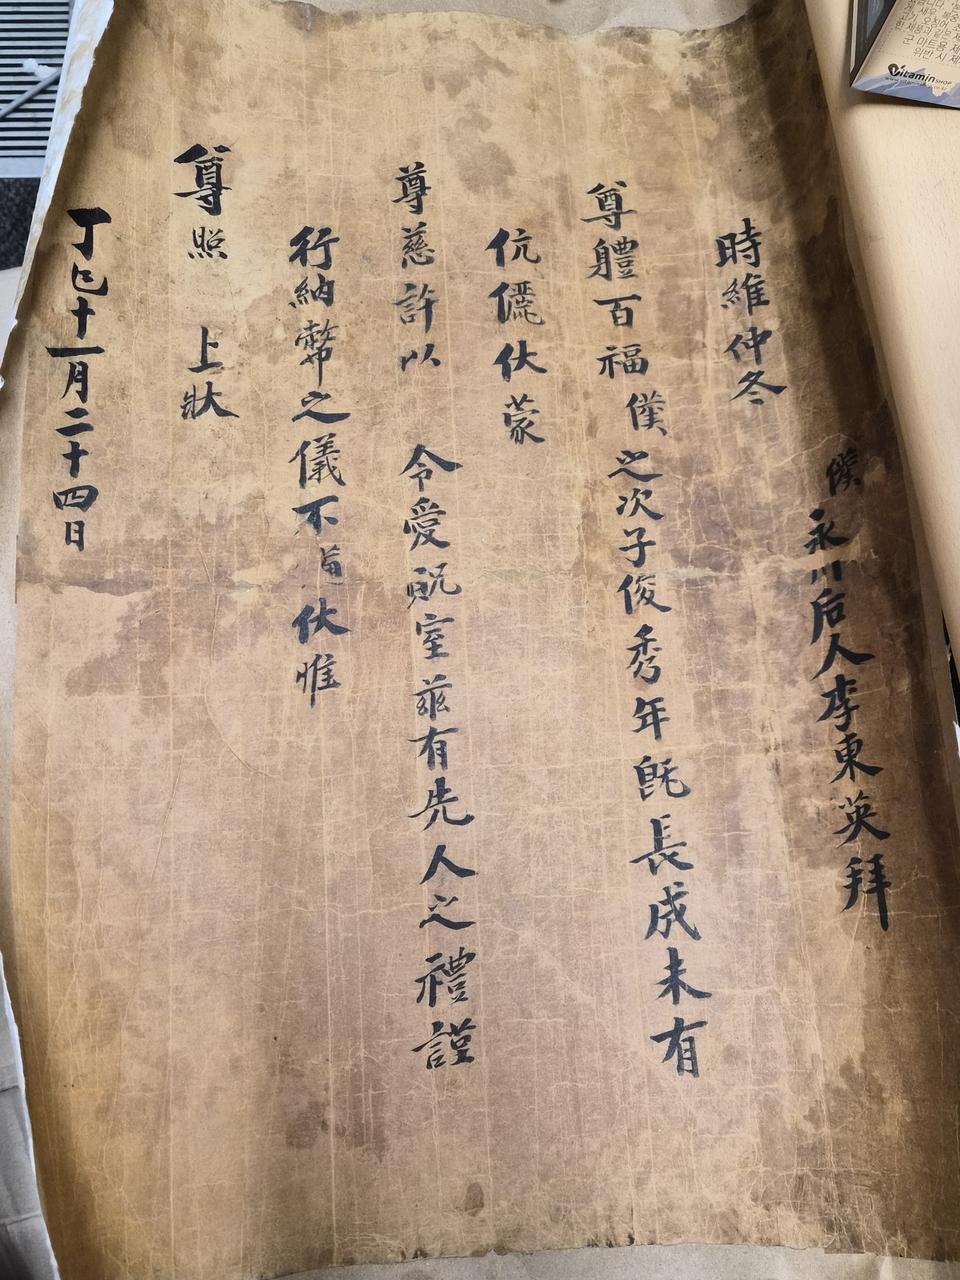 僕永川后人李東英拜
時維仲冬
尊體百福僕之次子俊秀年旣長成未有
伉儷伏蒙
尊慈許以 令愛貺室玆有先人之禮謹
行納幣之儀不 伏惟
尊照 上狀
丁巳十一月二十四日
군 마트용 제
위반 시 제
Vitamin SHOP